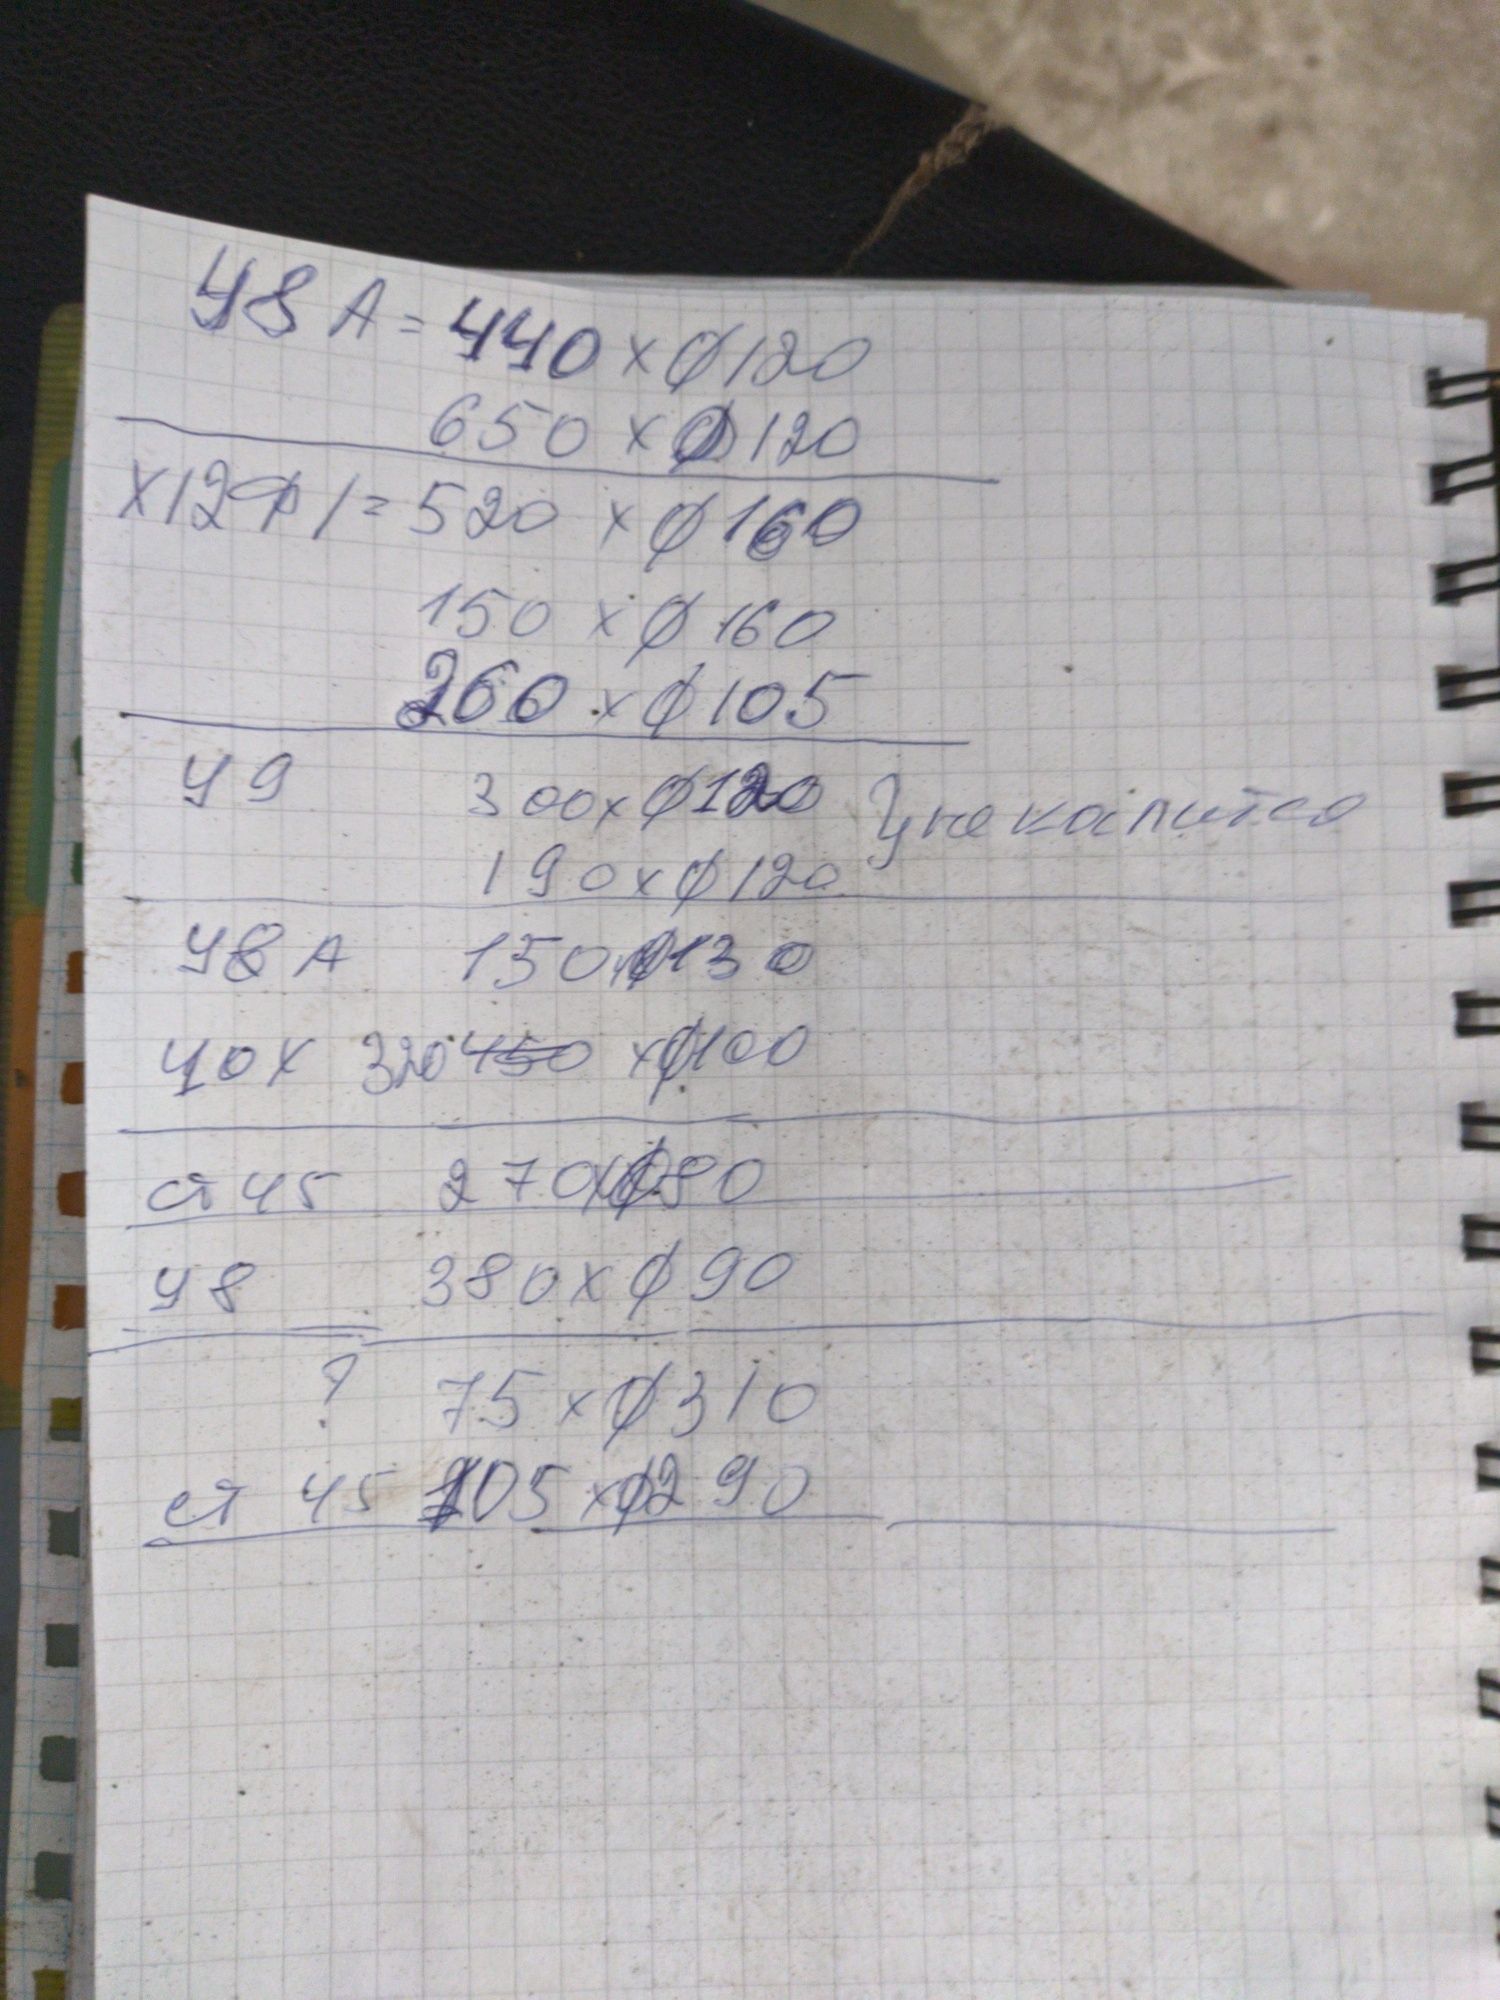 У8 А = 440 x ∅120
650 x ∅120
Х12Ф1 = 520 x ∅160
150 x ∅160
260 x ∅105
У9 300 x ∅120 } не калится
190 x ∅120
У8 А 150 x ∅130
У0Х 320 450 x ∅100
ст 45 270 x ∅80
У8 380 x ∅90
? 75 x ∅310
ст 45 105 x ∅290